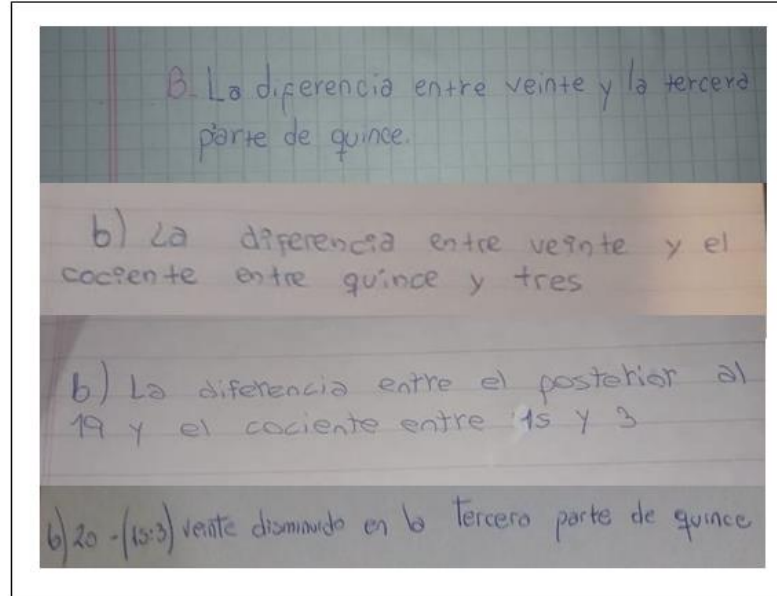 B. La diferencia entre veinte y la tercera
parte de quince.
b) La diferencia entre veinte y el
cociente entre quince y tres
b) La diferencia entre el posterior al
19 y el cociente entre 15 y 3
b) 20 - (15:3) veinte disminuido en la tercera parte de quince